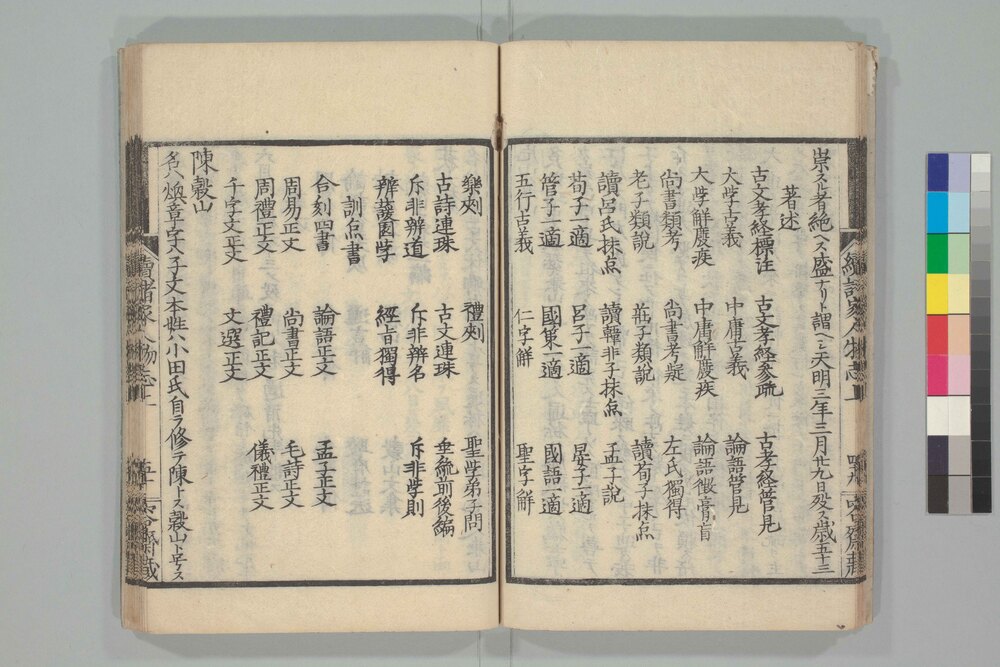 崇スル者絶ヘス盛ナリト謂ヘシ天明三年三月廿九日歿ス歳五十三
著述
古文孝經標注 古文孝經參疏 古孝經管見
大学古義 中庸古義 論語管見
大学解廢疾 中庸解廢疾 論語徴膏肓
尚書類考 尚書考疑 左氏獨得
老子類說 莊子類說 讀荀子抹点
讀呂氏抹点 讀韓非子抹点 孟子說
荀子一適 呂子一適 晏子一適
管子一適 國策一適 國語一適
五行古義 仁字解 聖字解
樂則 禮則 聖学弟子問
古詩連珠 古文連珠 垂統前後編
斥非辨道 斥非辨名 斥非学則
辨蘐園学 經旨獨得
訓点書
合刻四書 論語正文 孟子正文
周易正文 尚書正文 毛詩正文
周禮正文 禮記正文 儀禮正文
千字文正文 文選正文
陳穀山
名ハ煥章字ハ子文本姓ハ小田氏自ラ修テ陳トス穀山ト号ス
續諸家人物志上